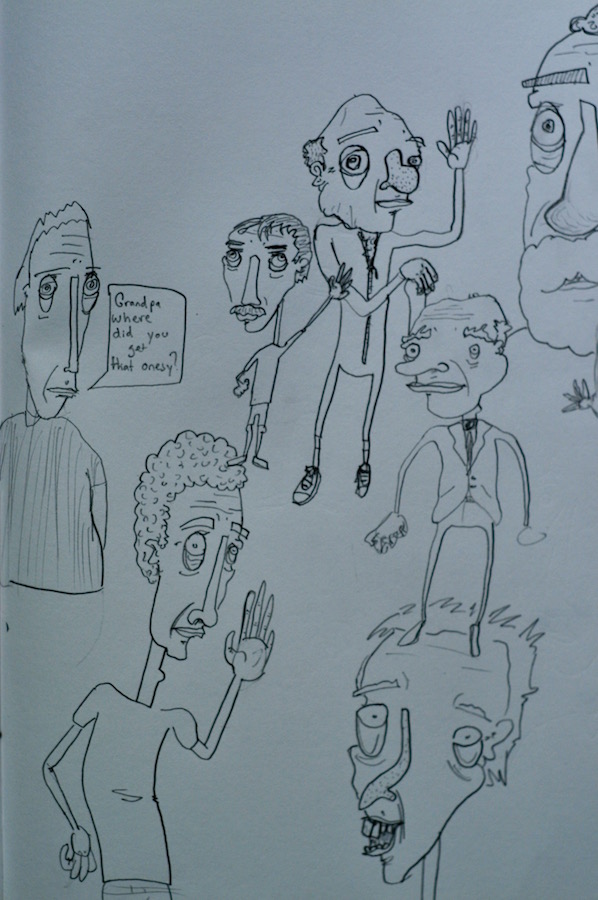 Grandpa
where
did you
get
that onesy?